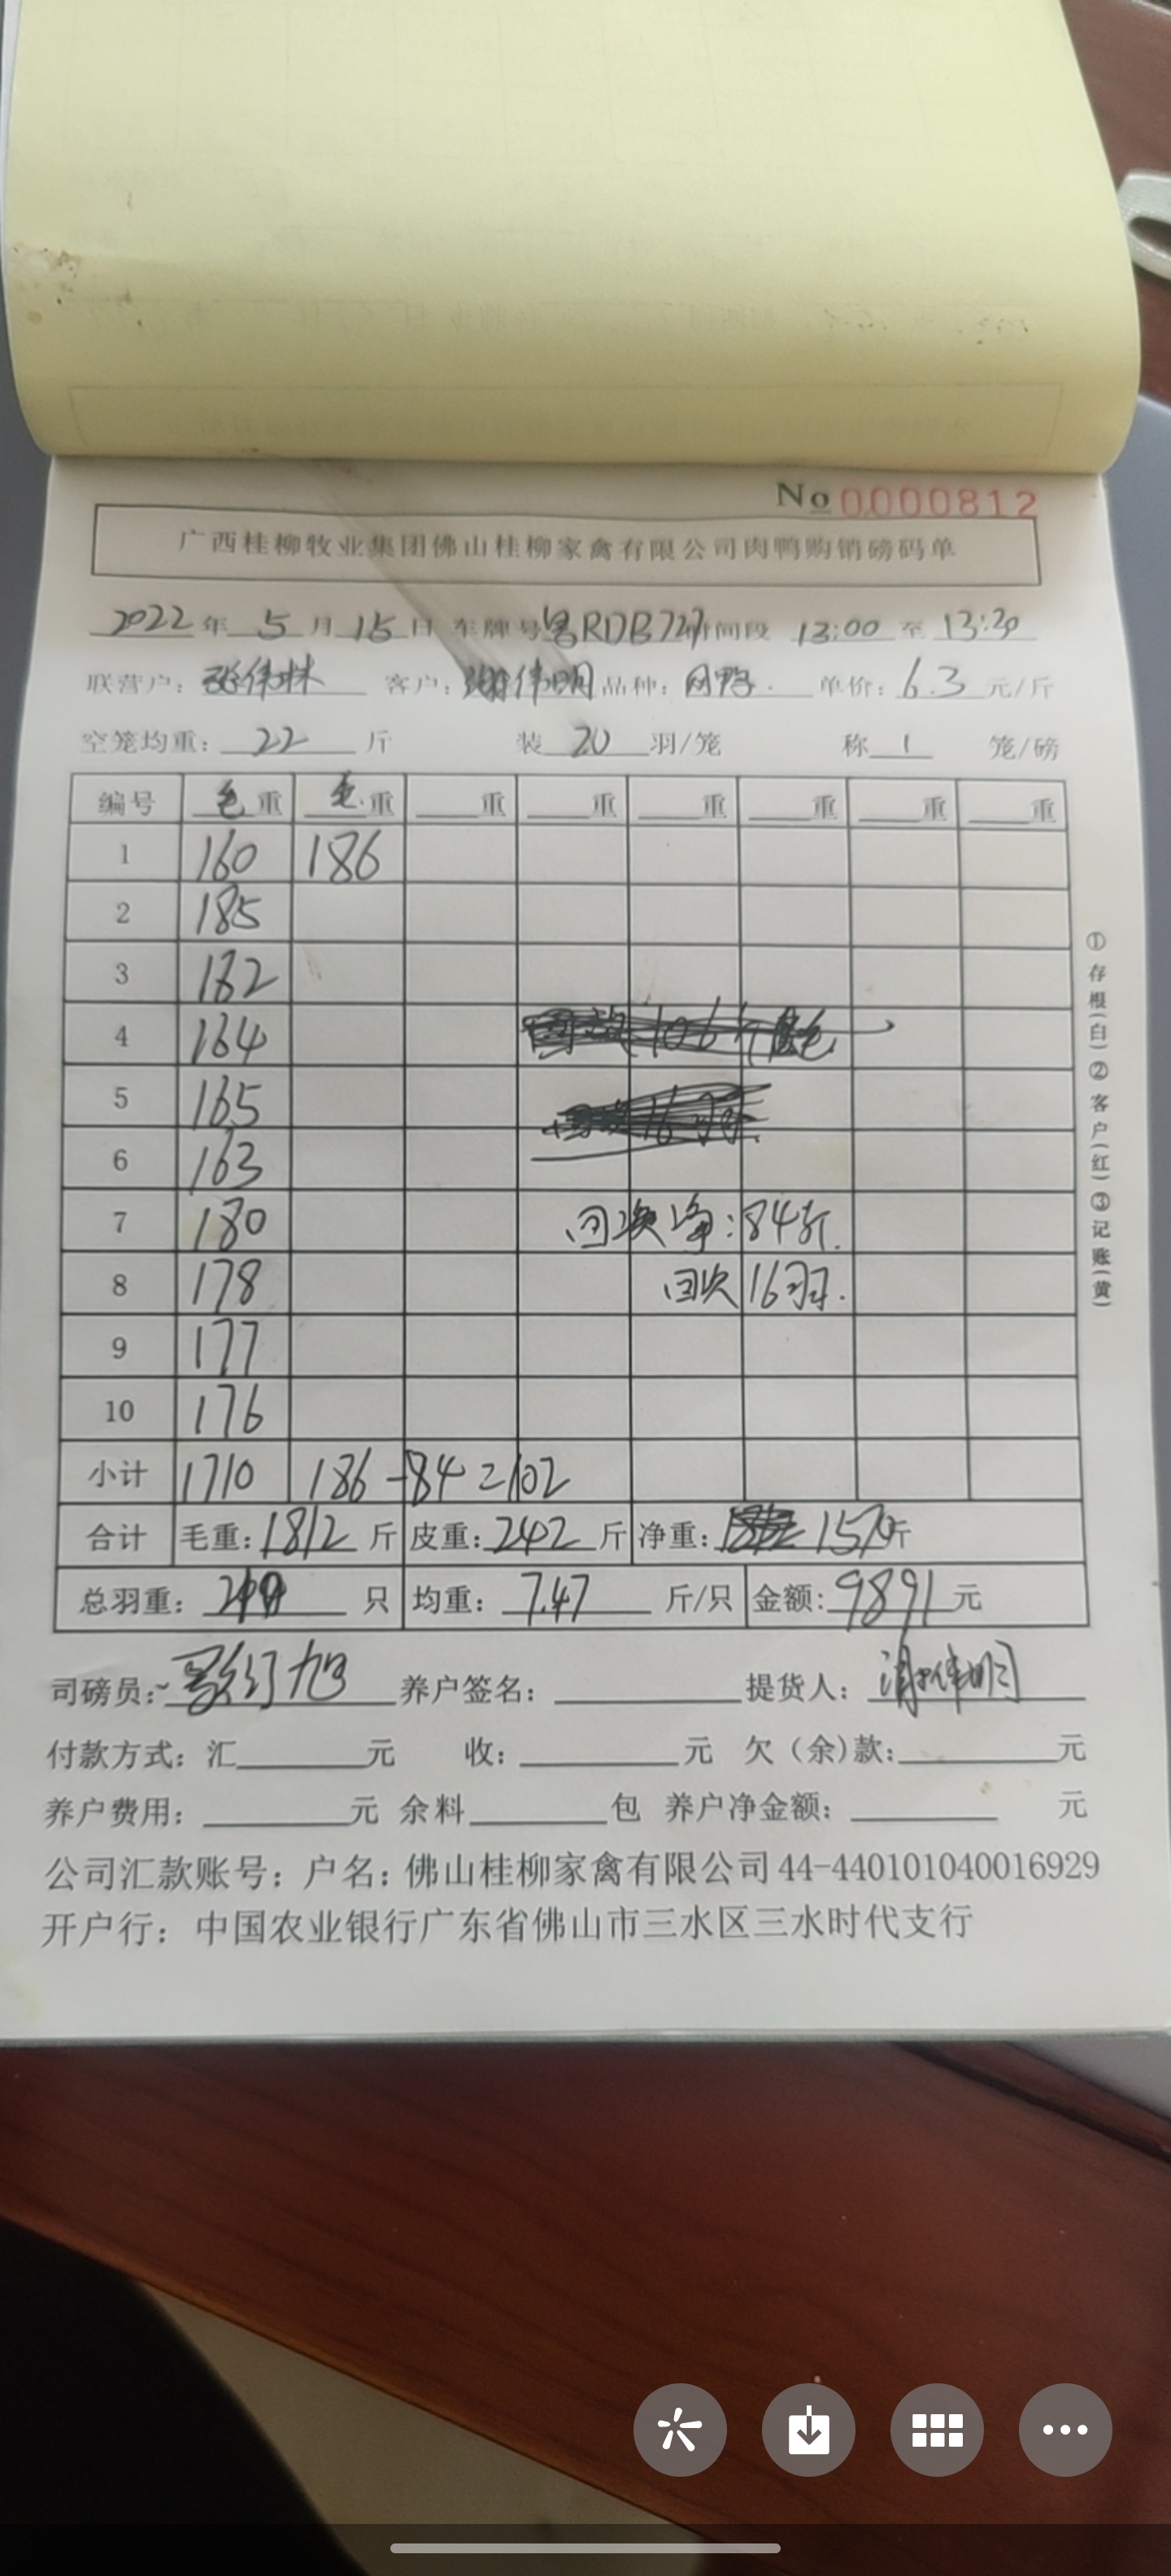 No 0000812
广西桂柳牧业集团佛山桂柳家禽有限公司肉鸭购销磅码单
2022 年 5 月 15 日 车牌号 粤RDB727 时间段 13:00 至 13:30
联营户: 张伟林 客户: 谢伟明 品种: 肉鸭 单价: 6.3 元/斤
空笼均重: 22 斤 装 20 羽/笼 称 1 笼/磅
编号 毛重 毛重 重 重 重 重 重 重
1 160 186
2 185
3 182
4 164
5 165
6 163
7 180 回次净:84斤.
8 178 回次16羽.
9 177
10 176
小计 1710 186-84=102
合计 毛重: 1812 斤 皮重: 242 斤 净重: 1570斤
总羽重: 只 均重: 7.47 斤/只 金额: 9891 元
司磅员: 养户签名: 提货人: 谢伟明
付款方式: 汇 元 收: 元 欠(余)款: 元
养户费用: 元 余料 包 养户净金额: 元
公司汇款账号: 户名: 佛山桂柳家禽有限公司 44-440101040016929
开户行: 中国农业银行广东省佛山市三水区三水时代支行
①存根(白)②客户(红)③记账(黄)